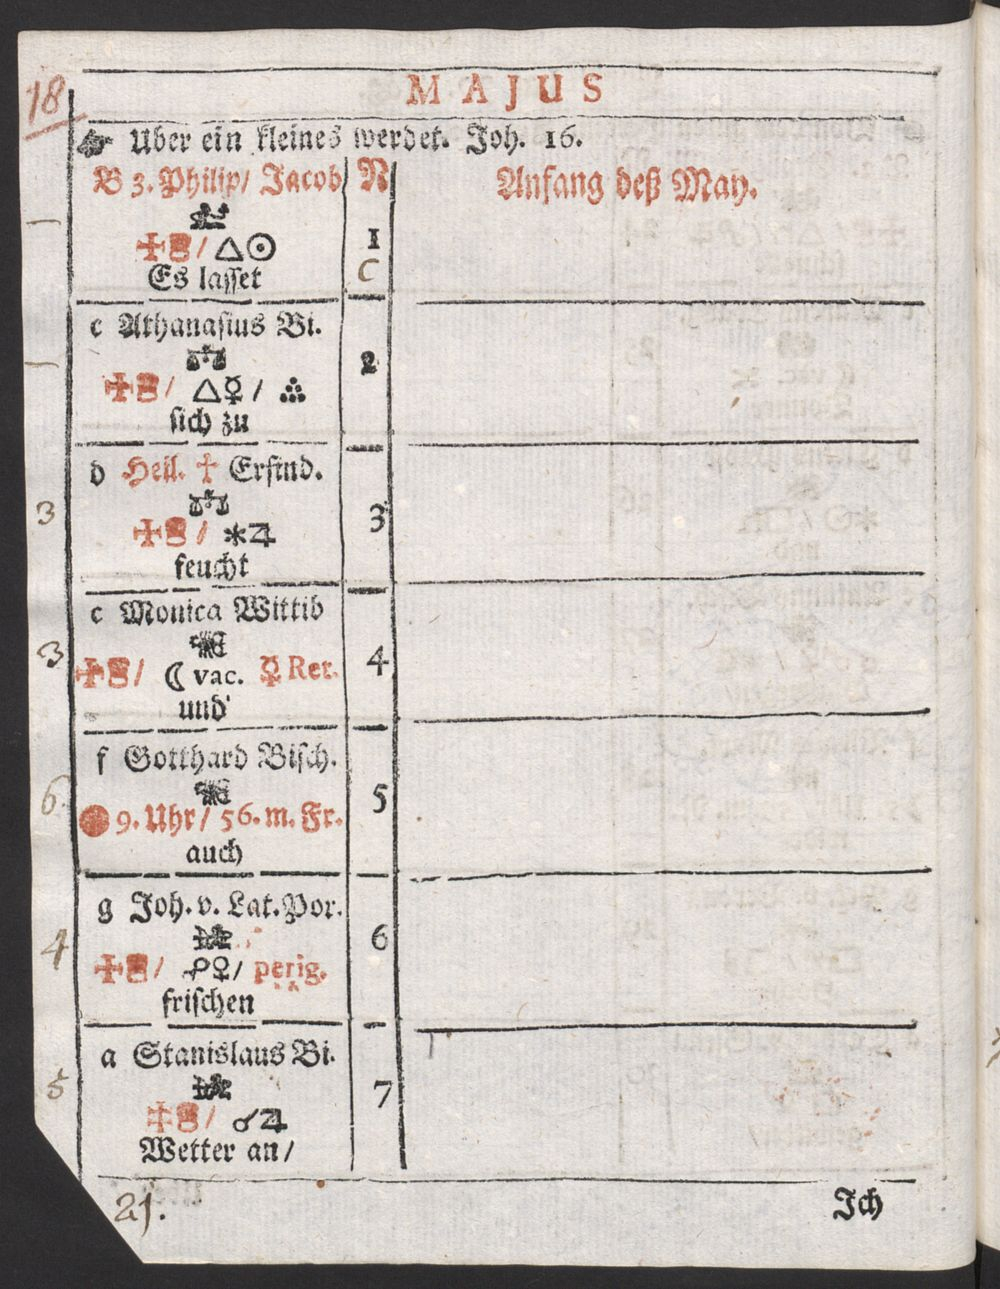 18
MAJUS
Uber ein kleines werdet. Joh. 16.
B 3. Philip/ Jacob N Anfang deß May.
/ △☉ 1
Es lasset C
c Athanasius Bi.
/ △☿ / 2
sich zu
d Heil. ✝ Erfind.
3 / ⚹♃ 3
feucht
e Monica Wittib
3 / ☾ vac. ☿ Ret. 4
und
f Gotthard Bisch.
6 9. Uhr / 56. m. Fr. 5
auch
g Joh. v. Lat. Por.
4 / ☍♀/ perig. 6
frischen
a Stanislaus Bi.
5 / ☌♃ 7
Wetter an /
21.
Jch